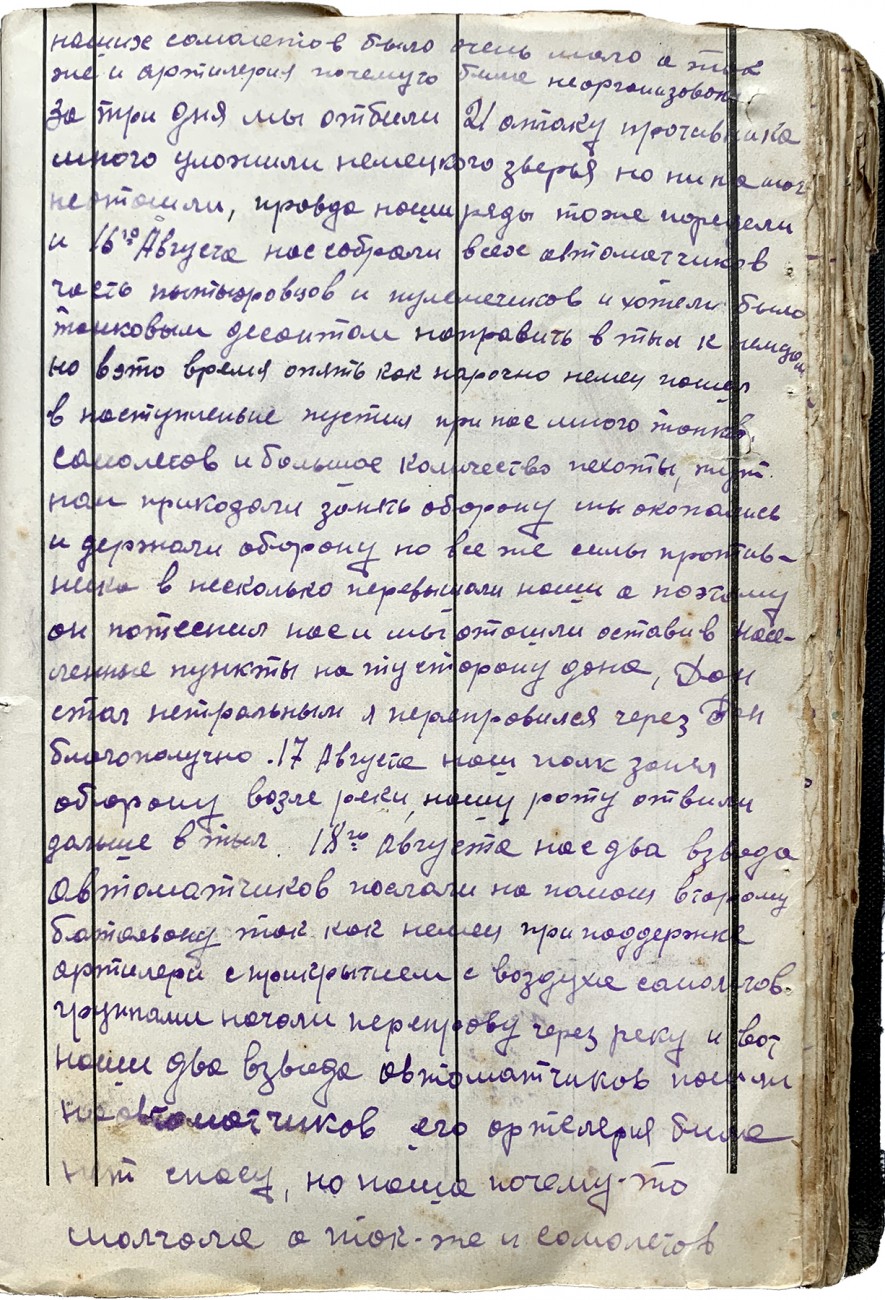 наших самолетов было очень мало а так
же и артилерия почемуто была неорганизован
За три дня мы отбили 21 атаку противника
много уложили немецкого зверья но ни на шаг
неотошли, правда наши ряды тоже поредели
и 16го Августа нас собрали всех автоматчиков
часть пытыэровцов и пулеметчиков и хотели было
танковым десантом направить в тыл к немцам
но вэто время опять как нарочно немец пошел
в наступленые пустил при нас много танков,
самолетов и большое количество пехоты, тут
нам приказали занять оборону мы окопались
и держали оборону но все же силы против-
ника в несколько перевышали наши а поэтому
он потеснил нас и мы отошли оставив насе-
ленные пункты на ту сторону дона, Дон
стал нетральным я переправился через Дон
благополучно. 17 Августа наш полк занял
оборону возле реки, нашу роту отвели
дальше в тыл. 18го Августа нас два взвода
автоматчиков послали на помощ второму
батальону так как немец при поддержке
артилери с прикрытием с воздуха самолетов
группами начали переправу через реку и вот
наши два взвода автоматчиков пошли
на автоматчиков его артелерия била
нет спасу, но наша почему-то
молчала а так-же и самолетов